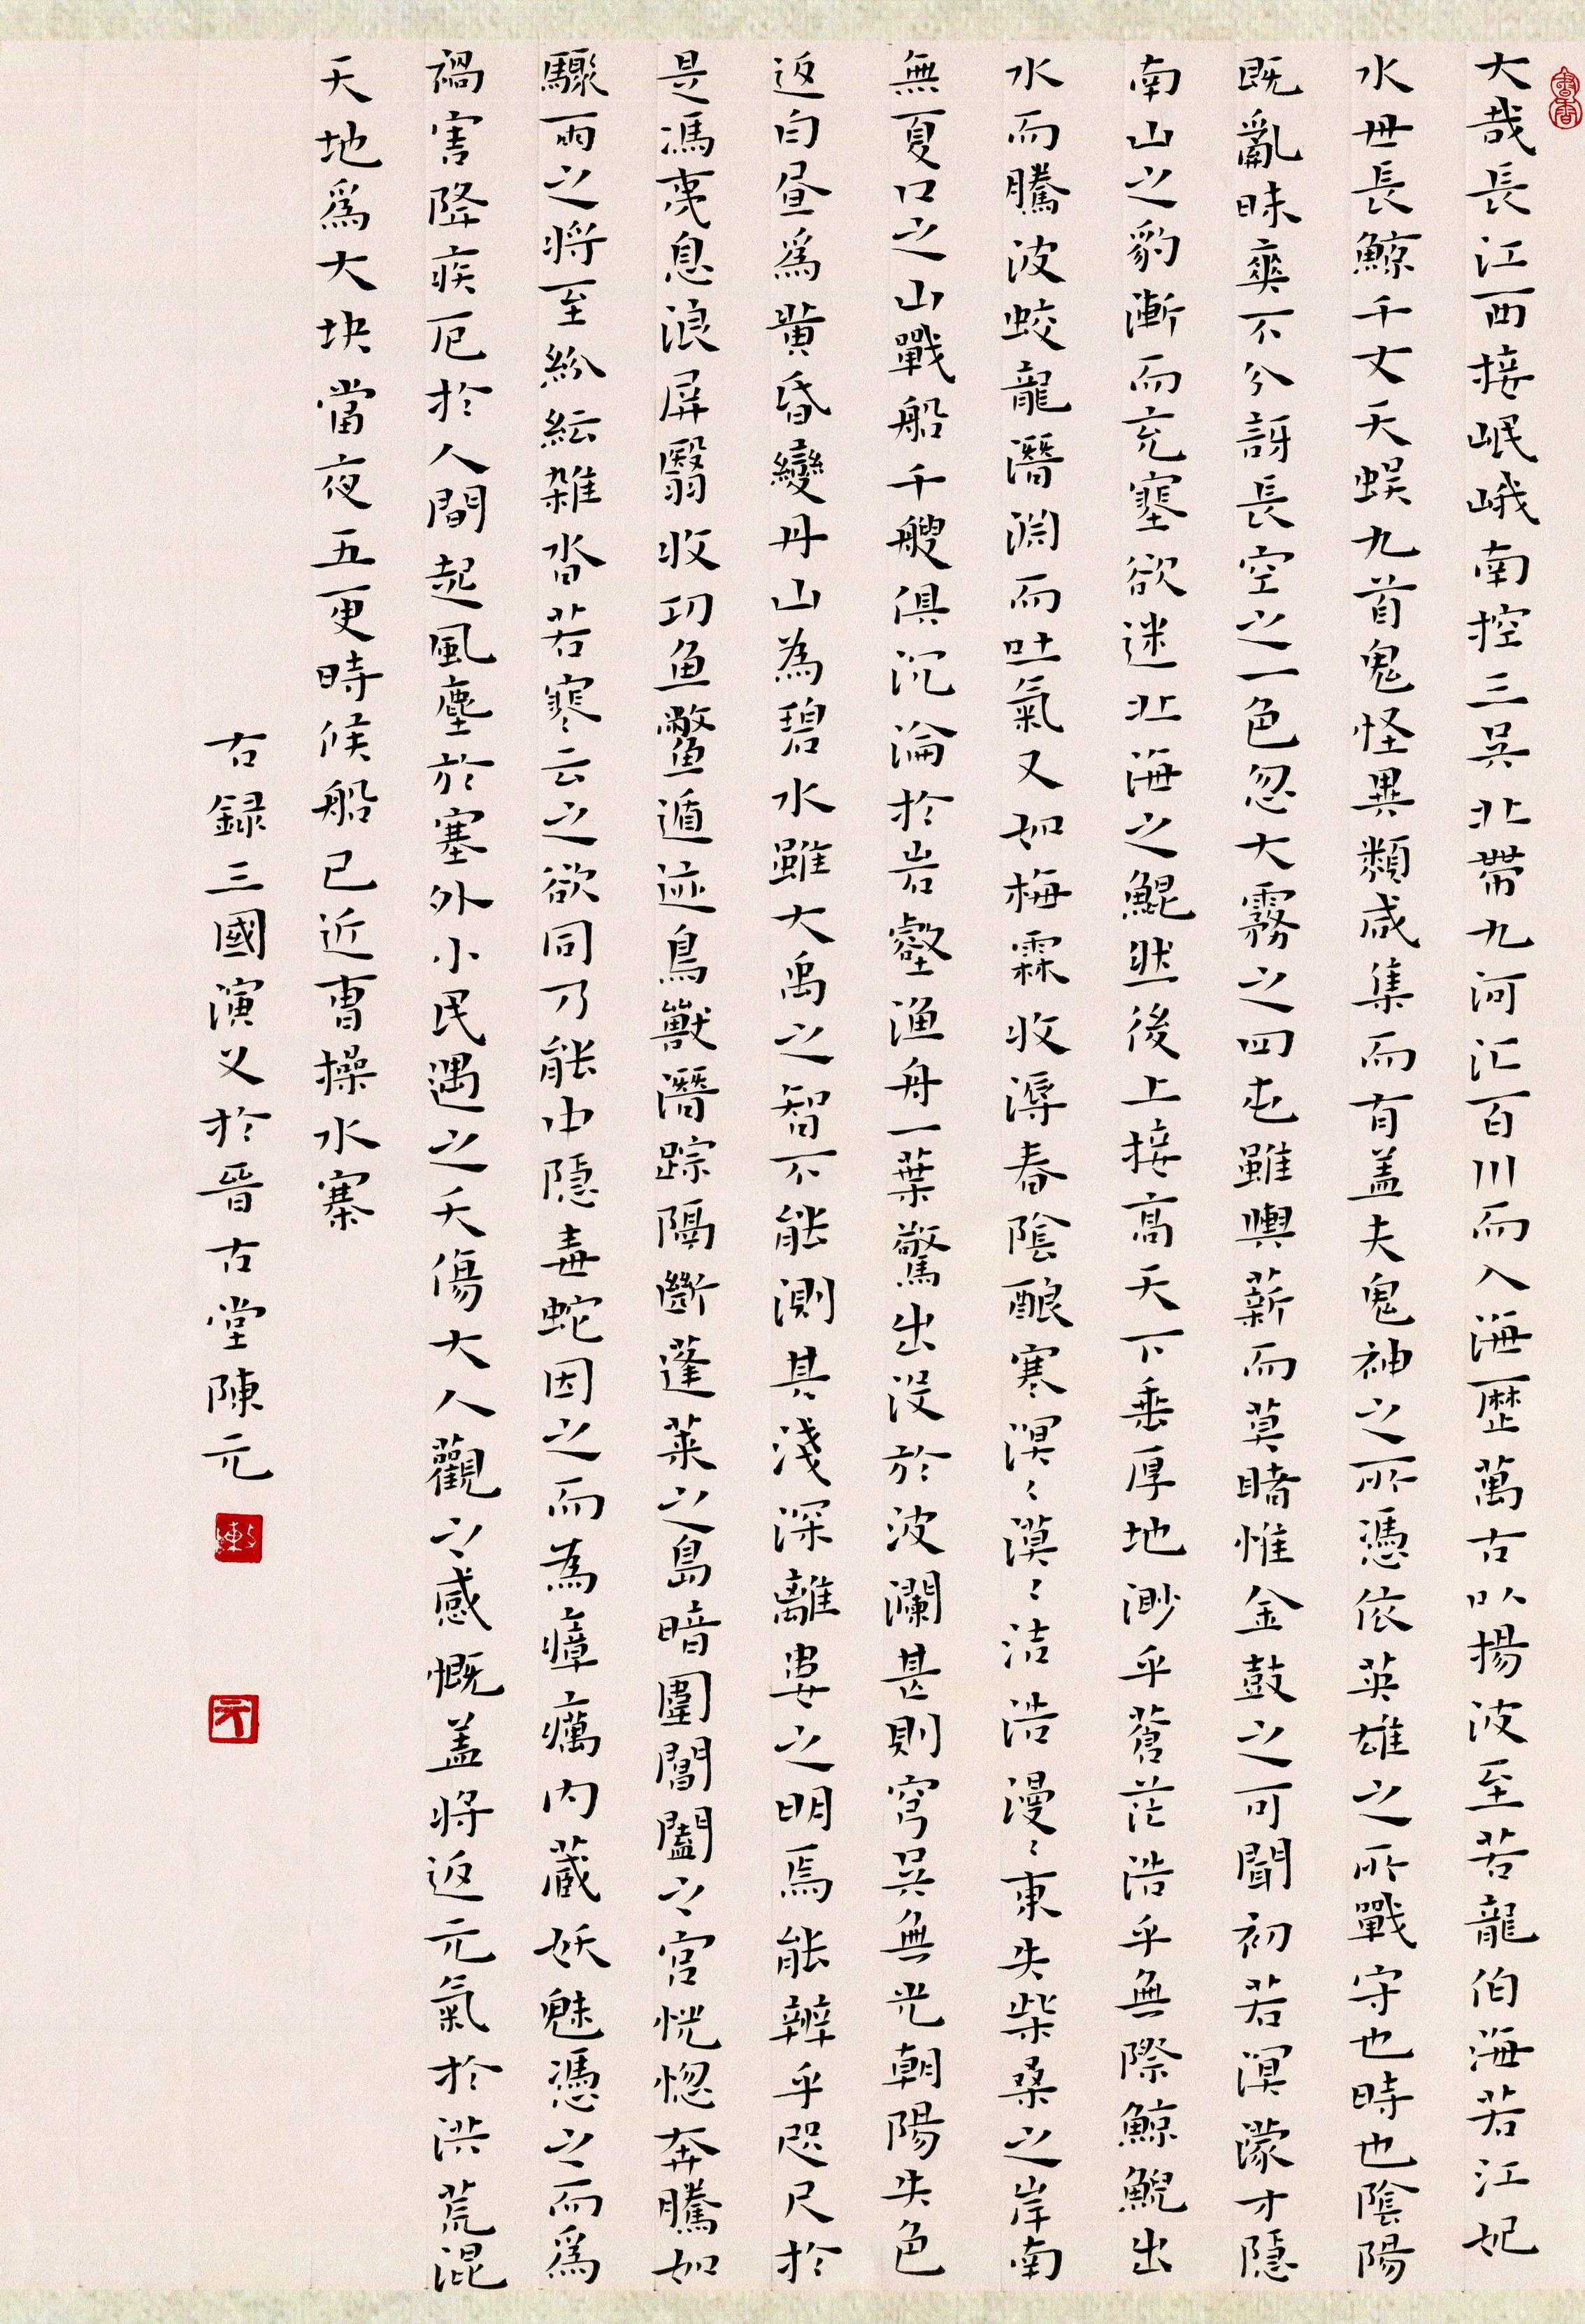 大哉長江西接岷峨南控三吳北帶九河汇百川而入海歷萬古以揚波至若龍伯海若江妃
水母長鯨千丈天蜈九首鬼怪異類咸集而有盖夫鬼神之所憑依英雄之所戰守也時也陰陽
既亂昧爽不分訝長空之一色忽大霧之四屯雖輿薪而莫睹惟金鼓之可聞初若溟濛才隱
南山之豹漸而充塞欲迷北海之鯤然後上接高天下垂厚地渺乎蒼茫浩乎無際鯨鯢出
水而騰波蛟龍潛淵而吐氣又如梅霖收溽春陰釀寒溟〻漠〻浩浩漫〻東失柴桑之岸南
無夏口之山戰船千艘俱沉淪於岩壑漁舟一葉驚出没於波瀾甚則穹昊無光朝陽失色
返白昼爲黄昏變丹山為碧水雖大禹之智不能測其淺深離婁之明焉能辨乎咫尺於
是馮夷息浪屏翳收功鱼鳖遁迹鳥獸潛踪隔斷蓬莱之島暗圍閶闔之宫恍惚奔騰如
驟雨之將至紛紜雜沓若寒云之欲同乃能中隱毒蛇因之而為瘴癘内藏妖魅憑之而爲
禍害降疾厄於人間起風塵於塞外小民遇之夭傷大人觀之感慨盖將返元氣於洪荒混
天地爲大块當夜五更時候船已近曹操水寨
右録三國演义於晉古堂陳元